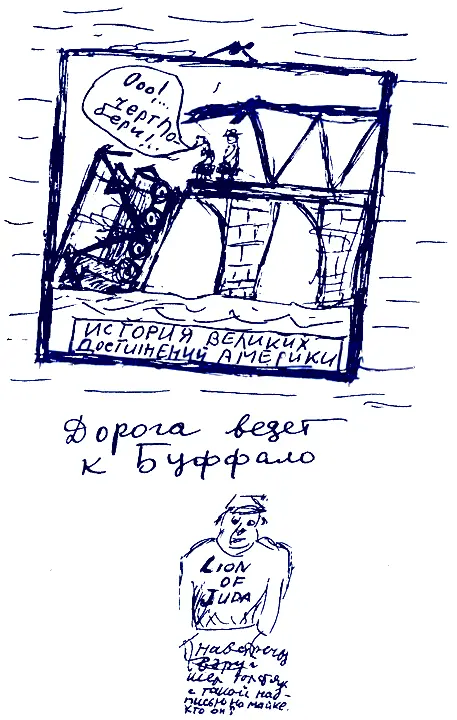 Ооо!...
черт по-
бери!..
ИСТОРИЯ ВЕЛИКИХ
ДОСТИЖЕНИЙ АМЕРИКИ
Дорога ведет
к Буффало
LION
OF
JUDA
навстречу
вдруг
шел
с такой над-
писью на майке.
Кто он?